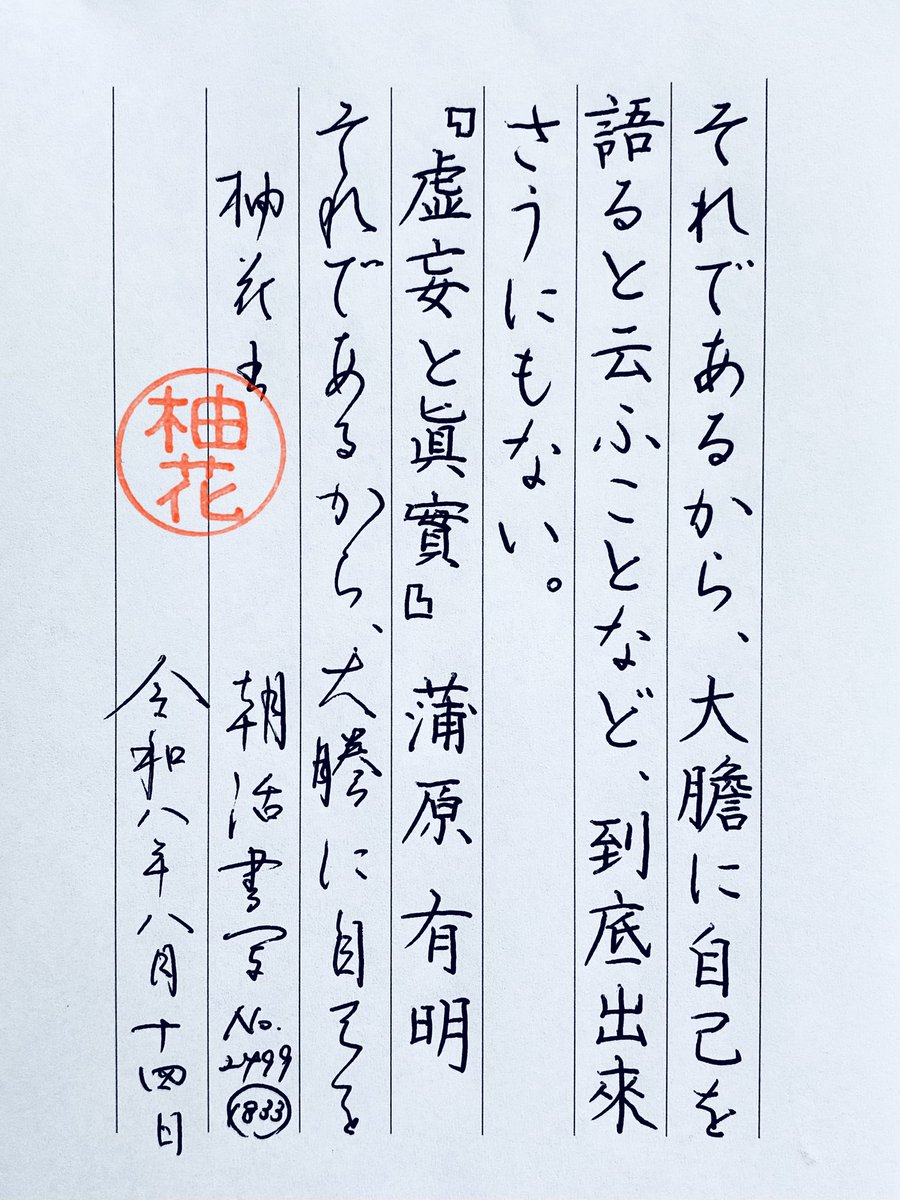 それであるから、大膽に自己を
語ると云ふことなど、到底出來
さうにもない。
『虚妄と眞實』 蒲原 有明
それであるから、大膽に自己を
柚花土
柚花
朝活書写 No. 2499 (833)
令和八年八月十四日